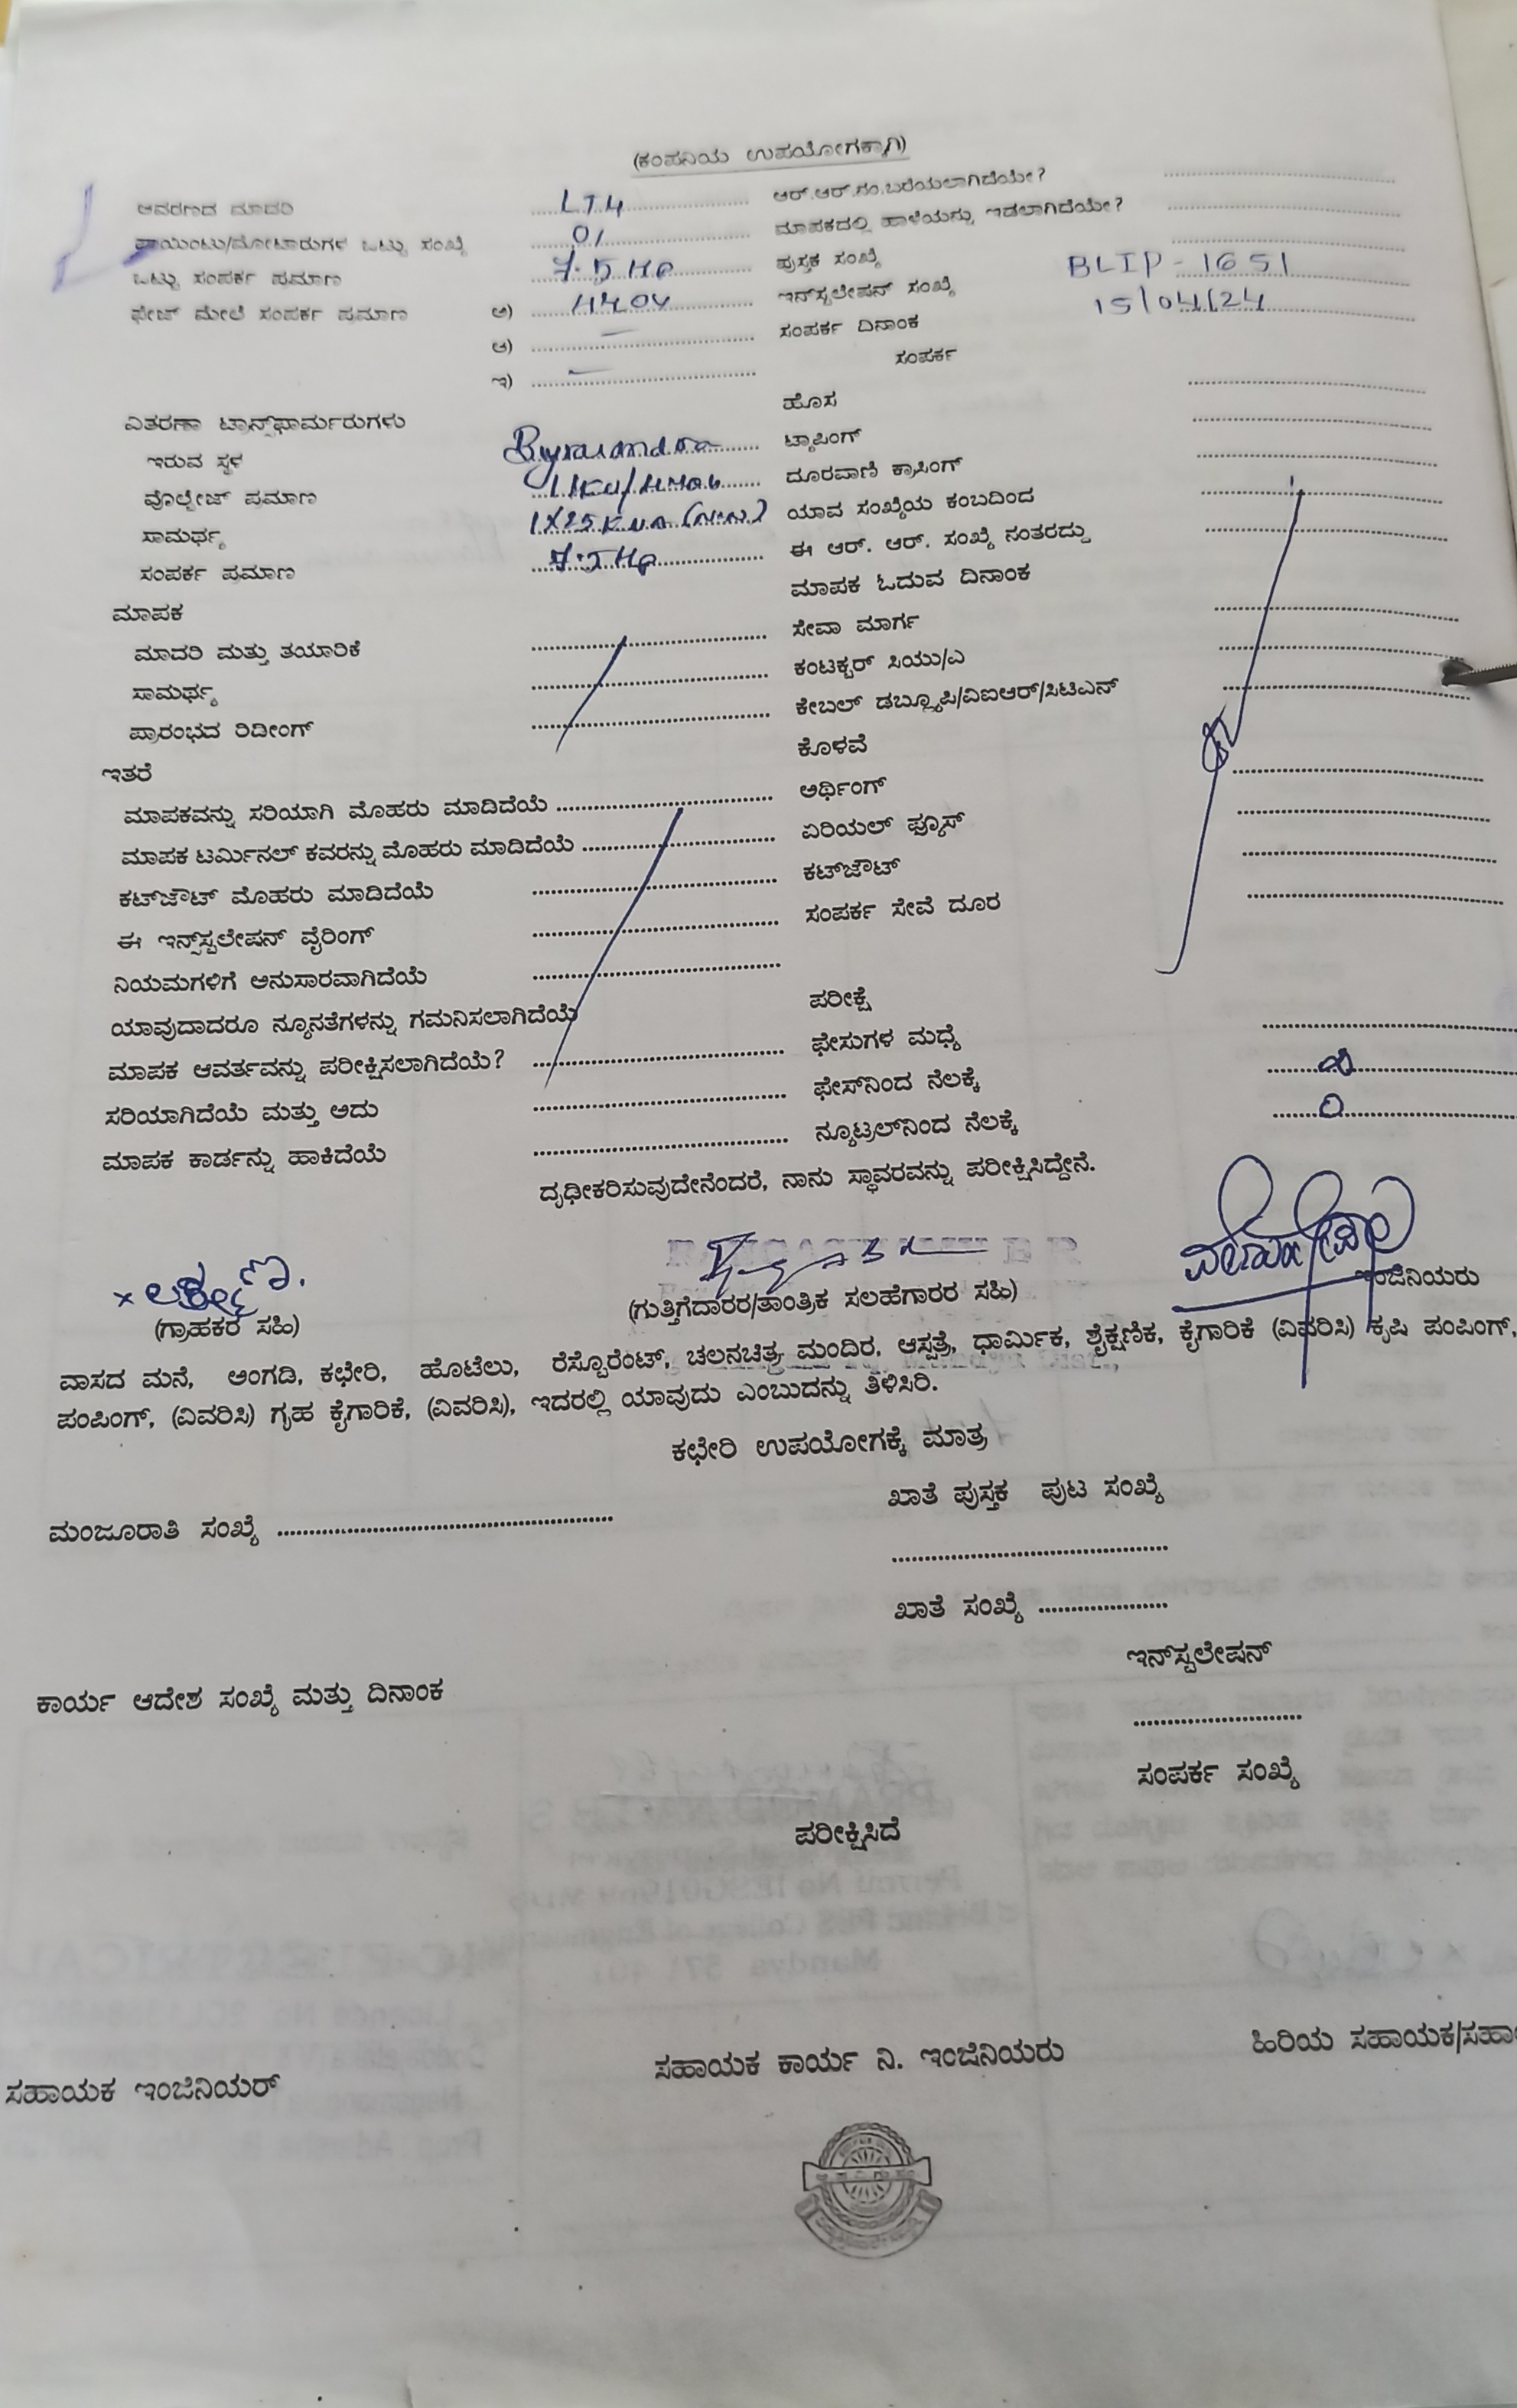 (ಕಂಪನಿಯ ಉಪಯೋಗಕ್ಕಾಗಿ)
ಆವರಣದ ಮಾದರಿ LT4 ಆರ್.ಆರ್.ಸಂ.ಬರೆಯಲಾಗಿದೆಯೇ?
ಪಾಯಿಂಟು/ಮೋಟಾರುಗಳ ಒಟ್ಟು ಸಂಖ್ಯೆ 01 ಮಾಪಕದಲ್ಲಿ ಹಾಳೆಯನ್ನು ಇಡಲಾಗಿದೆಯೇ?
ಒಟ್ಟು ಸಂಪರ್ಕ ಪ್ರಮಾಣ 7.5 HP ಪುಸ್ತಕ ಸಂಖ್ಯೆ
ಫೇಜ್ ಮೇಲೆ ಸಂಪರ್ಕ ಪ್ರಮಾಣ ಅ) 440V ಇನ್‌ಸ್ಟಲೇಷನ್ ಸಂಖ್ಯೆ BLIP-1651
ಆ) ಸಂಪರ್ಕ ದಿನಾಂಕ 15/04/24
ಸಂಪರ್ಕ
ಇ)
ವಿತರಣಾ ಟ್ರಾನ್ಸ್‌ಫಾರ್ಮರುಗಳು ಹೊಸ
ಇರುವ ಸ್ಥಳ ಟ್ಯಾಪಿಂಗ್
ವೊಲ್ಟೇಜ್ ಪ್ರಮಾಣ ದೂರವಾಣಿ ಕ್ರಾಸಿಂಗ್
ಸಾಮರ್ಥ್ಯ 1X25 KVA ಯಾವ ಸಂಖ್ಯೆಯ ಕಂಬದಿಂದ
ಸಂಪರ್ಕ ಪ್ರಮಾಣ 7.5 HP ಈ ಆರ್. ಆರ್. ಸಂಖ್ಯೆ ನಂತರದ್ದು
ಮಾಪಕ ಮಾಪಕ ಓದುವ ದಿನಾಂಕ
ಮಾದರಿ ಮತ್ತು ತಯಾರಿಕೆ ಸೇವಾ ಮಾರ್ಗ
ಸಾಮರ್ಥ್ಯ ಕಂಟಕ್ಟರ್ ಸಿಯು/ಎ
ಪ್ರಾರಂಭದ ರಿಡೀಂಗ್ ಕೇಬಲ್ ಡಬ್ಲ್ಯೂಪಿ/ವಿಐಆರ್/ಸಿಟಿಎನ್
ಇತರೆ ಕೊಳವೆ
ಮಾಪಕವನ್ನು ಸರಿಯಾಗಿ ಮೊಹರು ಮಾಡಿದೆಯೆ ಅರ್ಥಿಂಗ್
ಮಾಪಕ ಟರ್ಮಿನಲ್ ಕವರನ್ನು ಮೊಹರು ಮಾಡಿದೆಯೆ ಏರಿಯಲ್ ಫ್ಯೂಸ್
ಕಟ್‌ಜೌಟ್ ಮೊಹರು ಮಾಡಿದೆಯೆ ಕಟ್‌ಜೌಟ್
ಈ ಇನ್ಸ್‌ಸ್ಟಲೇಷನ್ ವೈರಿಂಗ್ ಸಂಪರ್ಕ ಸೇವೆ ದೂರ
ನಿಯಮಗಳಿಗೆ ಅನುಸಾರವಾಗಿದೆಯೆ
ಯಾವುದಾದರೂ ನ್ಯೂನತೆಗಳನ್ನು ಗಮನಿಸಲಾಗಿದೆಯೆ ಪರೀಕ್ಷೆ
ಮಾಪಕ ಆವರ್ತವನ್ನು ಪರೀಕ್ಷಿಸಲಾಗಿದೆಯೆ? ಫೇಸುಗಳ ಮಧ್ಯೆ
ಸರಿಯಾಗಿದೆಯೆ ಮತ್ತು ಅದು ಫೇಸ್‌ನಿಂದ ನೆಲಕ್ಕೆ
ಮಾಪಕ ಕಾರ್ಡನ್ನು ಹಾಕಿದೆಯೆ ನ್ಯೂಟ್ರಲ್‌ನಿಂದ ನೆಲಕ್ಕೆ 0
ದೃಢೀಕರಿಸುವುದೇನೆಂದರೆ, ನಾನು ಸ್ಥಾವರವನ್ನು ಪರೀಕ್ಷಿಸಿದ್ದೇನೆ.
(ಗ್ರಾಹಕರ ಸಹಿ) (ಗುತ್ತಿಗೆದಾರರ/ತಾಂತ್ರಿಕ ಸಲಹೆಗಾರರ ಸಹಿ) ಇಂಜಿನಿಯರು
ವಾಸದ ಮನೆ, ಅಂಗಡಿ, ಕಛೇರಿ, ಹೊಟೆಲು, ರೆಸ್ಟೊರೆಂಟ್, ಚಲನಚಿತ್ರ ಮಂದಿರ, ಆಸ್ಪತ್ರೆ, ಧಾರ್ಮಿಕ, ಶೈಕ್ಷಣಿಕ, ಕೈಗಾರಿಕೆ (ವಿವರಿಸಿ) ಕೃಷಿ ಪಂಪಿಂಗ್,
ಪಂಪಿಂಗ್, (ವಿವರಿಸಿ) ಗೃಹ ಕೈಗಾರಿಕೆ, (ವಿವರಿಸಿ), ಇದರಲ್ಲಿ ಯಾವುದು ಎಂಬುದನ್ನು ತಿಳಿಸಿರಿ.
ಕಛೇರಿ ಉಪಯೋಗಕ್ಕೆ ಮಾತ್ರ
ಮಂಜೂರಾತಿ ಸಂಖ್ಯೆ ಖಾತೆ ಪುಸ್ತಕ ಪುಟ ಸಂಖ್ಯೆ
ಖಾತೆ ಸಂಖ್ಯೆ
ಇನ್‌ಸ್ಟಲೇಷನ್
ಕಾರ್ಯ ಆದೇಶ ಸಂಖ್ಯೆ ಮತ್ತು ದಿನಾಂಕ
ಸಂಪರ್ಕ ಸಂಖ್ಯೆ
ಪರೀಕ್ಷಿಸಿದೆ
ಸಹಾಯಕ ಇಂಜಿನಿಯರ್ ಸಹಾಯಕ ಕಾರ್ಯ ನಿ. ಇಂಜಿನಿಯರು ಹಿರಿಯ ಸಹಾಯಕ/ಸಹಾ